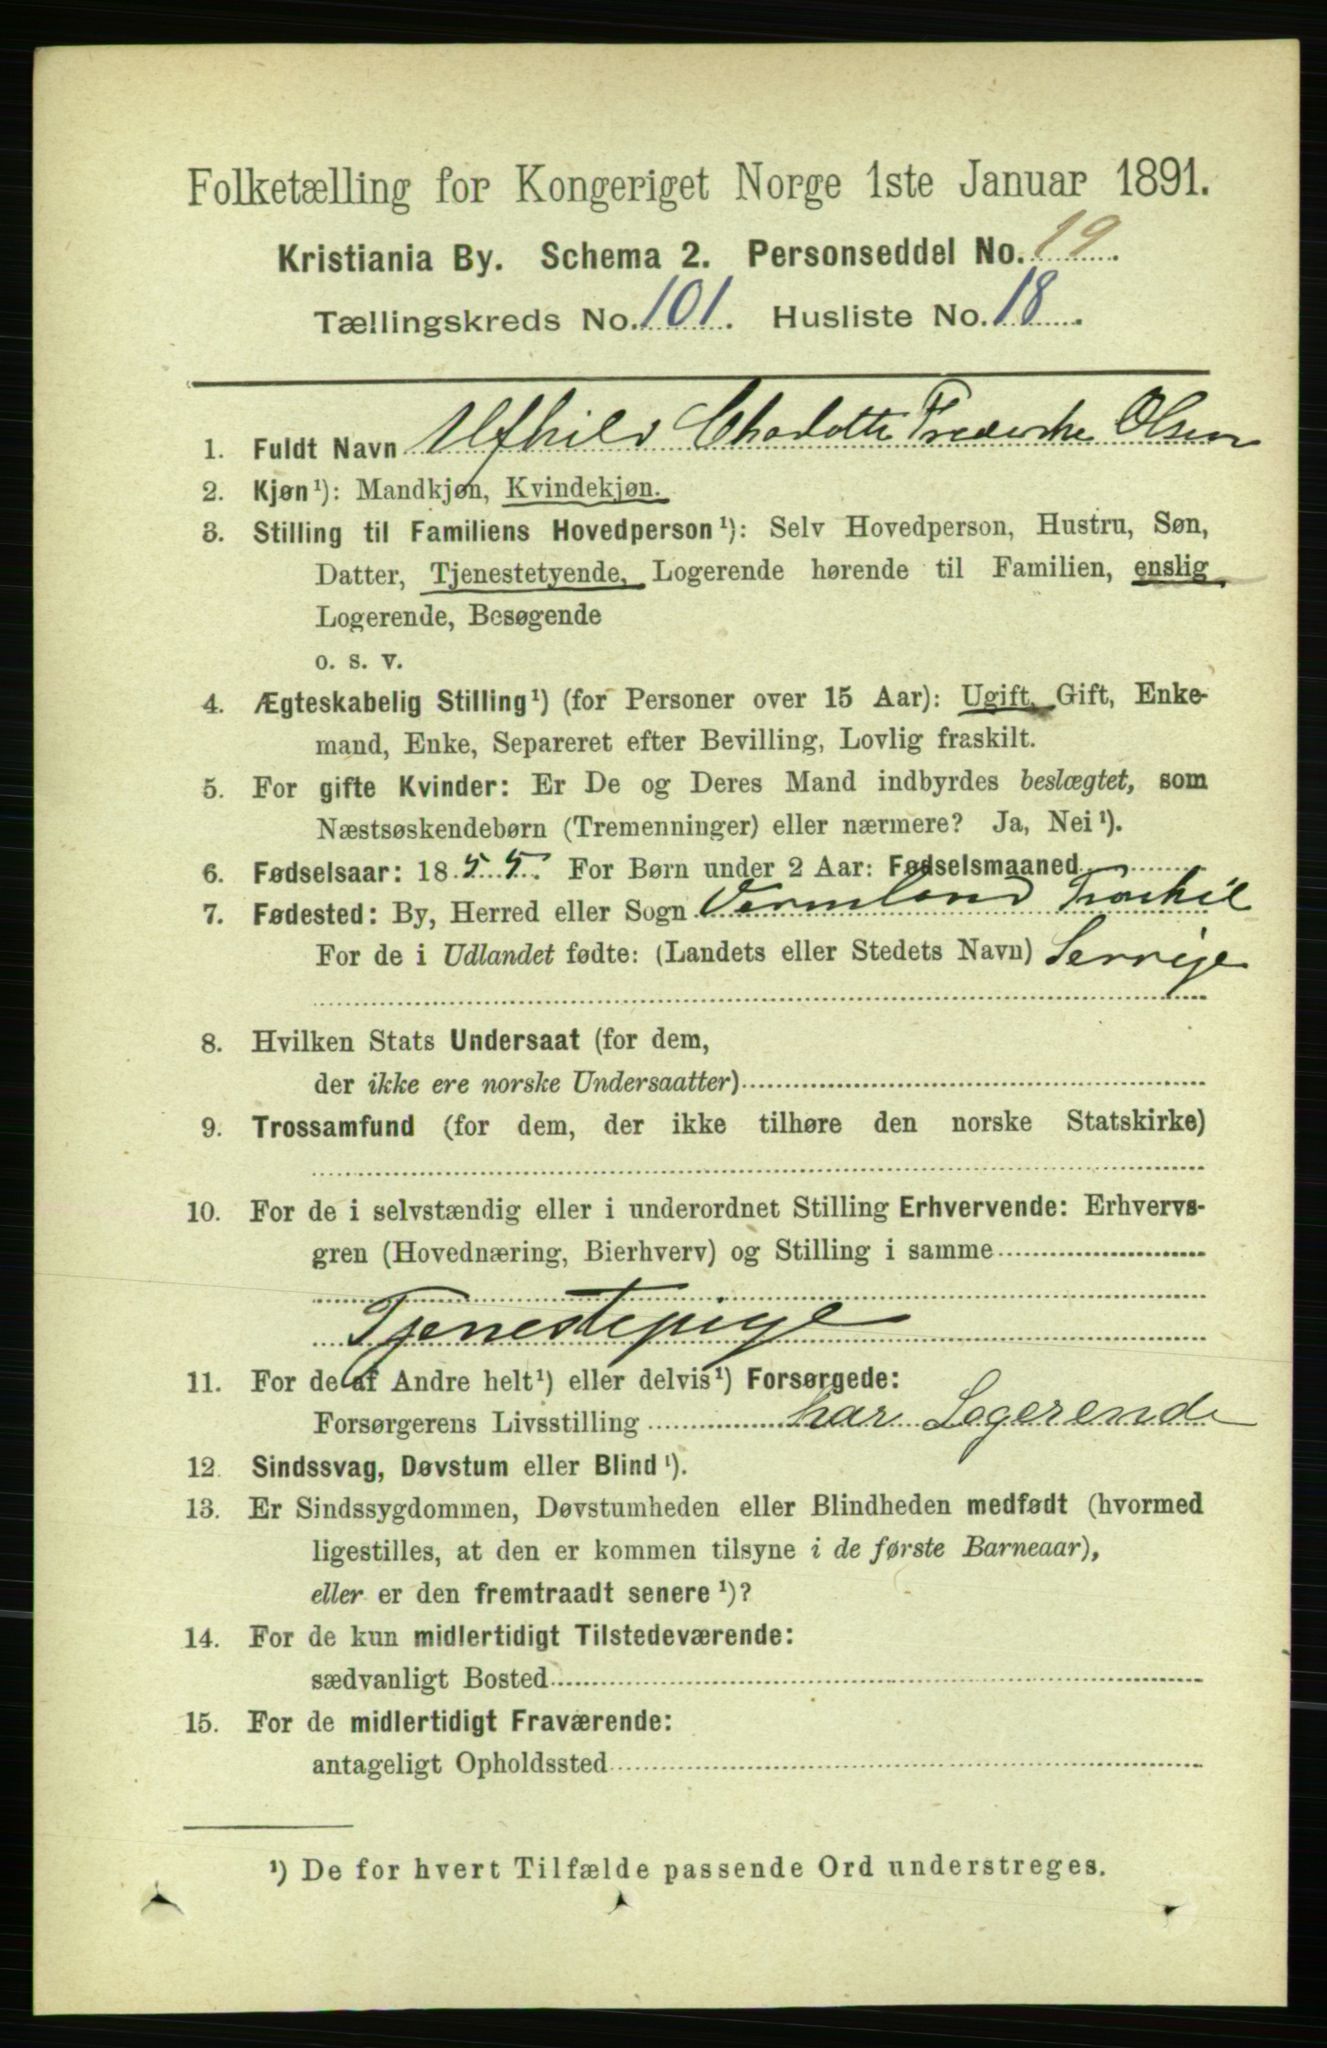 Folketælling for Kongeriget Norge 1ste Januar 1891.
Kristiania By. Schema 2. Personseddel No. 19.
Tællingskreds No. 101. Husliste No. 18.
1. Fuldt Navn Ulfhild Chadotte Frederike Olsen
2. Kjøn¹): Mandkjøn, Kvindekjøn.
3. Stilling til Familiens Hovedperson¹): Selv Hovedperson, Hustru, Søn,
Datter, Tjenestetyende, Logerende hørende til Familien, enslig
Logerende, Besøgende
o. s. v.
4. Ægteskabelig Stilling¹) (for Personer over 15 Aar): Ugift, Gift, Enke-
mand, Enke, Separeret efter Bevilling, Lovlig fraskilt.
5. For gifte Kvinder: Er De og Deres Mand indbyrdes beslægtet, som
Næstsøskendebørn (Tremenninger) eller nærmere? Ja, Nei¹).
6. Fødselsaar: 1855. For Børn under 2 Aar: Fødselsmaaned
7. Fødested: By, Herred eller Sogn Vermland
For de i Udlandet fødte: (Landets eller Stedets Navn) Serrige
8. Hvilken Stats Undersaat (for dem,
der ikke ere norske Undersaatter)
9. Trossamfund (for dem, der ikke tilhøre den norske Statskirke)
10. For de i selvstændig eller i underordnet Stilling Erhvervende: Erhvervs-
gren (Hovednæring, Bierhverv) og Stilling i samme
Tjenestepige
11. For de af Andre helt¹) eller delvis¹) Forsørgede:
Forsørgerens Livsstilling har Logerende
12. Sindssvag, Døvstum eller Blind¹).
13. Er Sindssygdommen, Døvstumheden eller Blindheden medfødt (hvormed
ligestilles, at den er kommen tilsyne i de første Barneaar),
eller er den fremtraadt senere¹)?
14. For de kun midlertidigt Tilstedeværende:
sædvanligt Bosted
15. For de midlertidigt Fraværende:
antageligt Opholdssted
¹) De for hvert Tilfælde passende Ord understreges.